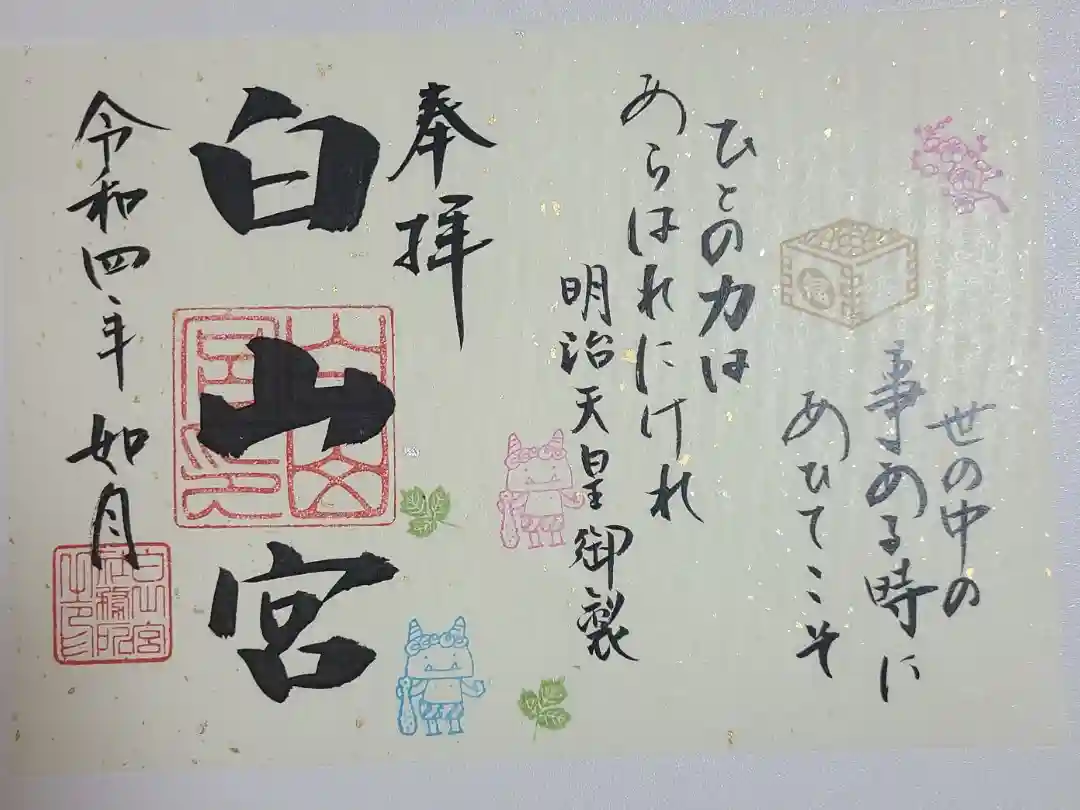 世の中の
事ある時に
あひてこそ
ひとの力は
あらはれにけれ
明治天皇御製
奉拝
白山宮
令和四年 如月
白山宮
社務所
之印